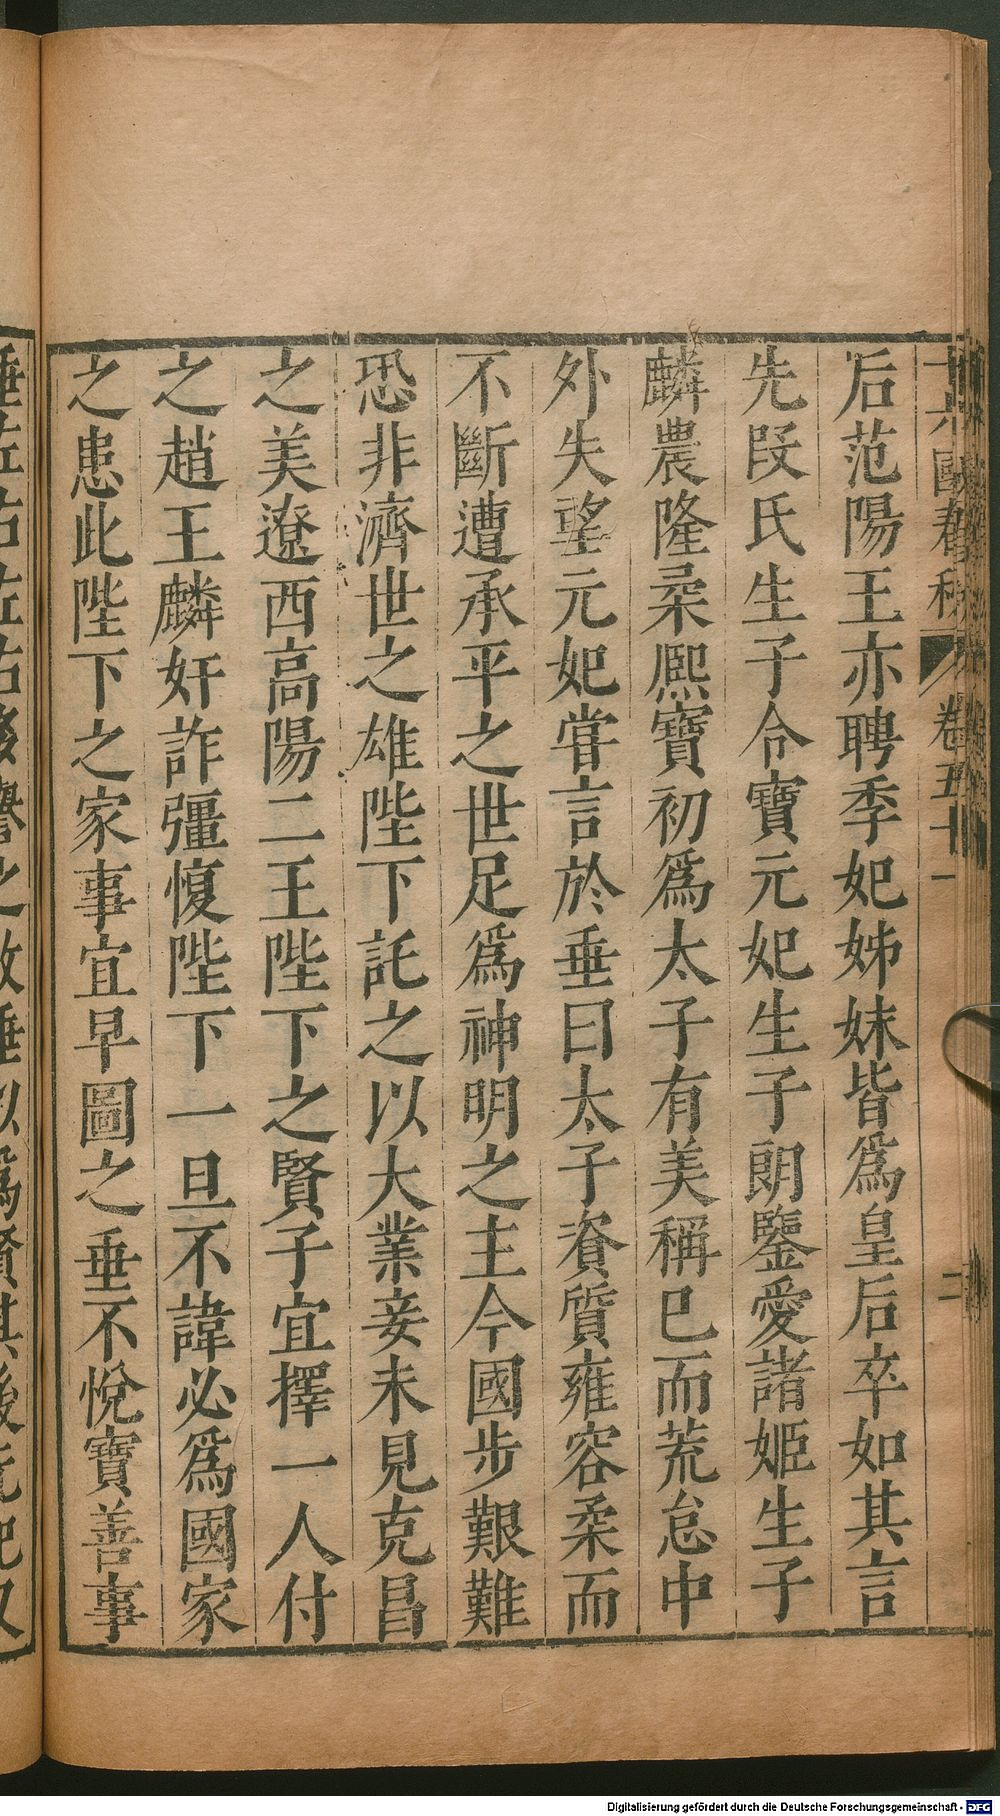 十六國春秋 卷五十一 二
后范陽王亦聘季妃姊妹皆爲皇后卒如其言
先段氏生子令寶元妃生子朗鑒愛諸姬生子
麟農隆柔熙寶初爲太子有美稱已而荒怠中
外失望元妃嘗言於垂曰太子資質雍容柔而
不斷遭承平之世足爲神明之主今國步艱難
恐非濟世之雄陛下託之以大業妾未見克昌
之美遼西高陽二王陛下之賢子宜擇一人付
之趙王麟奸詐彊愎陛下一旦不諱必爲國家
之患此陛下之家事宜早圖之垂不悅寶善事
垂左右左右多譽之故垂以爲賢其後元妃又
Digitalisierung gefördert durch die Deutsche Forschungsgemeinschaft - DFG